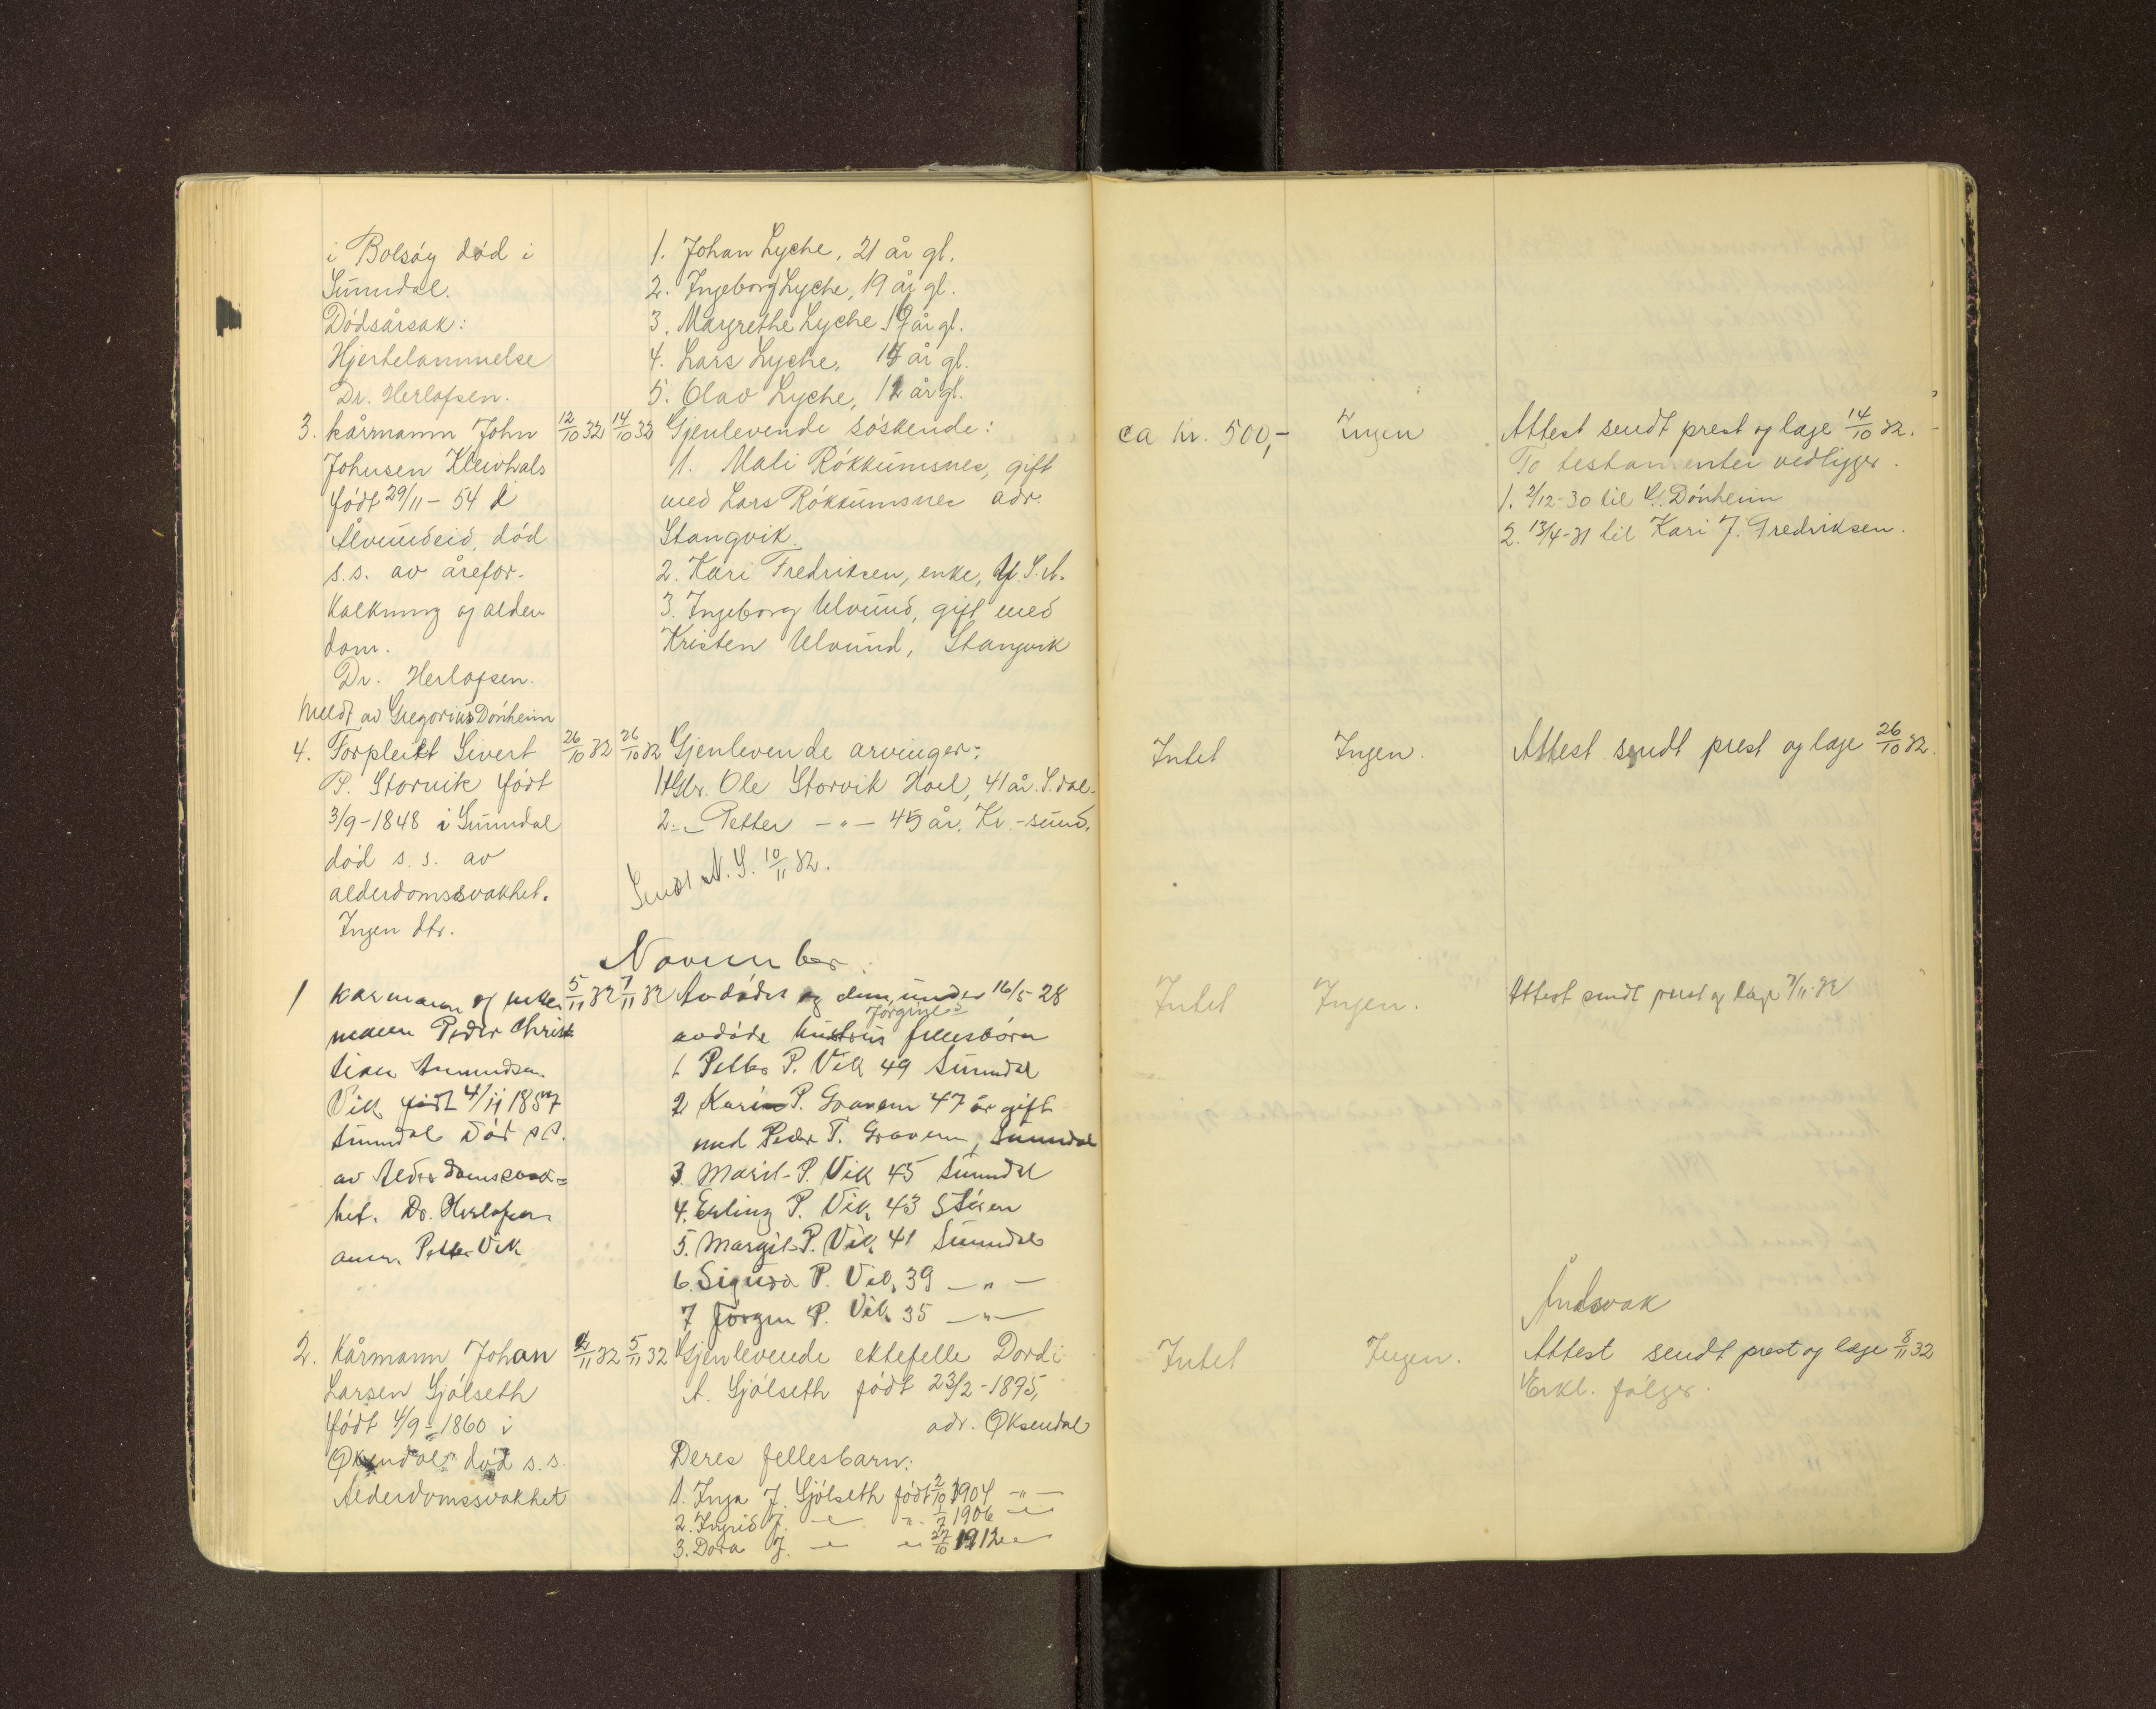 i Bolsøy død i
Sunndal.
Dødsårsak:
Hjertelammelse
Dr. Herlofsen.
1. Johan Lyche, 21 år gl.
2. Ingeborg Lyche, 19 år gl.
3. Margrethe Lyche 17 år gl.
4. Lars Lyche, år gl.
5. Olav Lyche, 12 år gl.
3. kårmann John 12/10 32 14/10 32 Gjenlevende søskende: ca kr. 500,- Ingen Attest sendt prest og læge 14/10 32.
Johnsen Kleivhals
født 29/11 - 54 i
Ålvundeid, død
s.s. av årefor-
kalkning og alder
dom.
Dr. Herlofsen.
Meldt av Gregorius Dønheim
1. Mali Røkkumsnes, gift
med Lars Røkkumsnes adr.
Stangvik.
2. Kari Fredriksen, enke,
3. Ingeborg Ulvund, gift med
Kristen Ulvund, Stangvik
To testamenter vedligger.
1. 2/12-30 til G. Dønheim
2. 13/4-31 til Kari J. Fredriksen.
4. Forpleiet Sivert 26/10 32 26/10 32 Gjenlevende arvinger: Intet Ingen. Attest sendt prest og læge 26/10 32.
P. Storvik født
3/9-1848 i Sunndal
død s.s. av
alderdomssvakhet.
Ingen dtr.
1. Gbr. Ole Storvik Hoel, 41 år. S.dal.
2. - Petter -"- 45 år. Kr.-sund.
Sendt N.S. 10/11 32.
November
1 kårmann og enke 5/11 32 7/11 32 Avdødes og dennes under 16/5 28 Intet Ingen. Attest sendt prest og læge 7/11 32
mann Peder Christ
tian Amundsen
Vik født 4/11 1857
Sunndal død s.s.
av Alderdomssvak=
het. Dr. Herlofsen
anm. Petter Vik
avdøde hustrus fellesbørn
1 Petter P. Vik 49 Sunndal
2 Kari P. Gravem 47 år gift
med Peder T. Gravem, Sunndal
3. Marit P. Vik 45 Sunndal
4. Erling P. Vik, 43 Støren
5. Margit P. Vik, 41 Sunndal
6. Sigurd P. Vik, 39 -"-
7 Jørgen P. Vik 35 -"-
Åndsvak
2. Kårmann Johan 2/11 32 5/11 32 Gjenlevende ektefelle Dordi Intet Ingen. Attest sendt prest og læge 8/11 32
Larsen Gjølseth
født 4/9-1860 i
Øksendal død s.s.
Alderdomssvakhet
A. Gjølseth født 23/2-1875,
adr. Øksendal
Deres fellesbarn:
1. Inga J. Gjølseth født 2/10 1904 -"-
2. Ingrid J. -"- -"- 1/7 1906 -"-
3. Dora J. -"- -"- 27/10 1912 -"-
Erkl. følger.